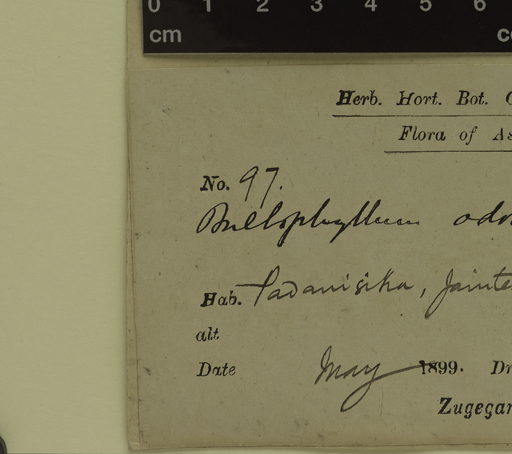 0 1 2 3 4 5 6
cm
Herb. Hort. Bot.
Flora of As
No. 97.
Bulbophyllum odo
Hab. Padanisika, Jainte
alt
Date May 1899. Dr
Zugegan